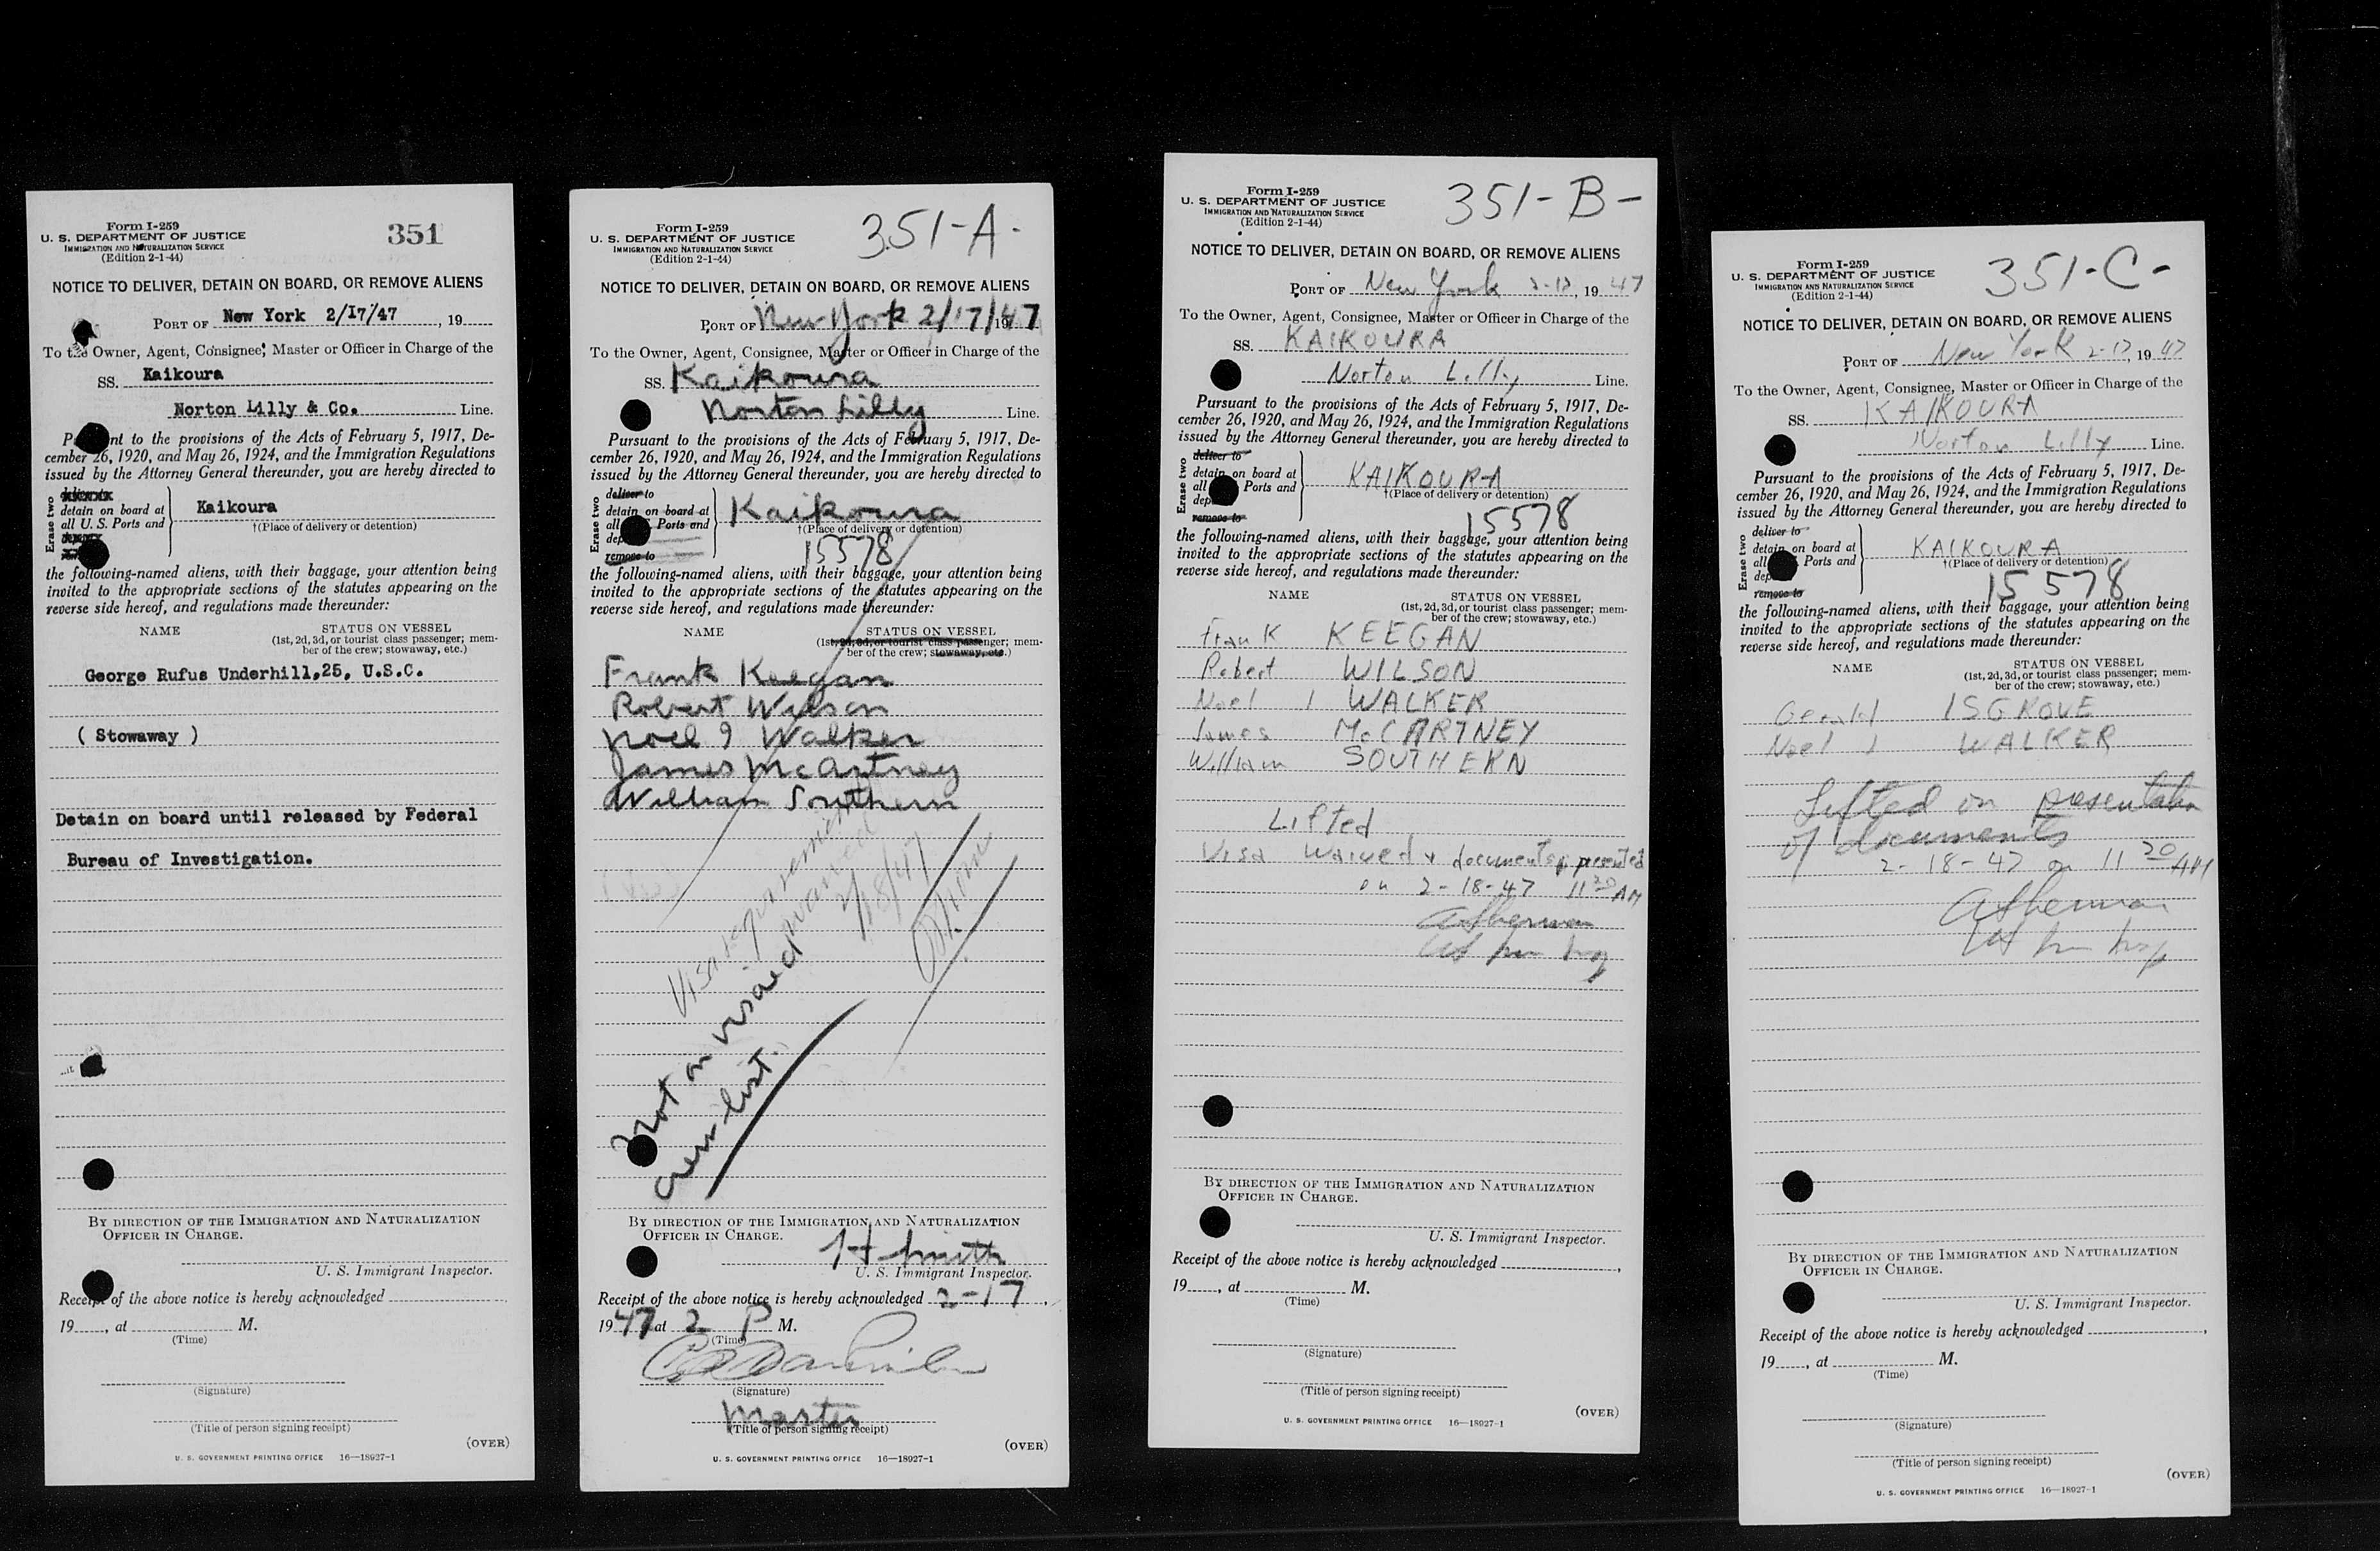 Form I-259
U. S. DEPARTMENT OF JUSTICE
IMMIGRATION AND NATURALIZATION SERVICE
(Edition 2-1-44)
351
NOTICE TO DELIVER, DETAIN ON BOARD, OR REMOVE ALIENS
PORT OF New York 2/17/47, 19
To the Owner, Agent, Consignee, Master or Officer in Charge of the
SS. Kaikoura
Norton Lilly & Co. Line.
Pursuant to the provisions of the Acts of February 5, 1917, De-
cember 26, 1920, and May 26, 1924, and the Immigration Regulations
issued by the Attorney General thereunder, you are hereby directed to
Erase two
detain on board at
all U.S. Ports and
Kaikoura
†(Place of delivery or detention)
the following-named aliens, with their baggage, your attention being
invited to the appropriate sections of the statutes appearing on the
reverse side hereof, and regulations made thereunder:
NAME STATUS ON VESSEL
(1st, 2d, 3d, or tourist class passenger; mem-
ber of the crew; stowaway, etc.)
George Rufus Underhill,25, U.S.C.
( Stowaway )
Detain on board until released by Federal
Bureau of Investigation.
BY DIRECTION OF THE IMMIGRATION AND NATURALIZATION
OFFICER IN CHARGE.
U. S. Immigrant Inspector.
Receipt of the above notice is hereby acknowledged
19, at M.
(Time)
(Signature)
(Title of person signing receipt)
(OVER)
U. S. GOVERNMENT PRINTING OFFICE 16—18927-1
Form I-259
U. S. DEPARTMENT OF JUSTICE
IMMIGRATION AND NATURALIZATION SERVICE
(Edition 2-1-44)
351-A-
NOTICE TO DELIVER, DETAIN ON BOARD, OR REMOVE ALIENS
PORT OF New York 2/17/1947
To the Owner, Agent, Consignee, Master or Officer in Charge of the
SS. Kaikoura
Norton Lilly Line.
Pursuant to the provisions of the Acts of February 5, 1917, De-
cember 26, 1920, and May 26, 1924, and the Immigration Regulations
issued by the Attorney General thereunder, you are hereby directed to
Erase two
deliver to
detain on board at
all Ports and
dep
remove to
Kaikoura
†(Place of delivery or detention)
15578
the following-named aliens, with their baggage, your attention being
invited to the appropriate sections of the statutes appearing on the
reverse side hereof, and regulations made thereunder:
NAME STATUS ON VESSEL
(1st, 2d, 3d, or tourist class passenger; mem-
ber of the crew; stowaway, etc.)
Frank Keegan
Robert Wilson
Noel I Walker
James McArtney
William Southern
Visa requirements
waived
2/18/47
Not on visaed
crew list.
BY DIRECTION OF THE IMMIGRATION AND NATURALIZATION
OFFICER IN CHARGE.
H Smith
U. S. Immigrant Inspector.
Receipt of the above notice is hereby acknowledged 2-17,
1947 at 2 P M.
(Time)
(Signature)
Master
(Title of person signing receipt)
(OVER)
U. S. GOVERNMENT PRINTING OFFICE 16—18927-1
Form I-259
U. S. DEPARTMENT OF JUSTICE
IMMIGRATION AND NATURALIZATION SERVICE
(Edition 2-1-44)
351-B-
NOTICE TO DELIVER, DETAIN ON BOARD, OR REMOVE ALIENS
PORT OF New York 2-17, 1947
To the Owner, Agent, Consignee, Master or Officer in Charge of the
SS. KAIKOURA
Norton Lilly Line.
Pursuant to the provisions of the Acts of February 5, 1917, De-
cember 26, 1920, and May 26, 1924, and the Immigration Regulations
issued by the Attorney General thereunder, you are hereby directed to
Erase two
deliver to
detain on board at
all Ports and
dep
remove to
KAIKOURA
†(Place of delivery or detention)
15578
the following-named aliens, with their baggage, your attention being
invited to the appropriate sections of the statutes appearing on the
reverse side hereof, and regulations made thereunder:
NAME STATUS ON VESSEL
(1st, 2d, 3d, or tourist class passenger; mem-
ber of the crew; stowaway, etc.)
Frank KEEGAN
Robert WILSON
Noel I WALKER
James McCARTNEY
William SOUTHERN
Lifted
Visa waived & documents presented
on 2-18-47 11 20 AM
ASherman
BY DIRECTION OF THE IMMIGRATION AND NATURALIZATION
OFFICER IN CHARGE.
U. S. Immigrant Inspector.
Receipt of the above notice is hereby acknowledged ,
19, at M.
(Time)
(Signature)
(Title of person signing receipt)
(OVER)
U. S. GOVERNMENT PRINTING OFFICE 16—18927-1
Form I-259
U. S. DEPARTMENT OF JUSTICE
IMMIGRATION AND NATURALIZATION SERVICE
(Edition 2-1-44)
351-C-
NOTICE TO DELIVER, DETAIN ON BOARD, OR REMOVE ALIENS
PORT OF New York 2-17, 1947
To the Owner, Agent, Consignee, Master or Officer in Charge of the
SS. KAIKOURA
Norton Lilly Line.
Pursuant to the provisions of the Acts of February 5, 1917, De-
cember 26, 1920, and May 26, 1924, and the Immigration Regulations
issued by the Attorney General thereunder, you are hereby directed to
Erase two
deliver to
detain on board at
all Ports and
dep
remove to
KAIKOURA
†(Place of delivery or detention)
15578
the following-named aliens, with their baggage, your attention being
invited to the appropriate sections of the statutes appearing on the
reverse side hereof, and regulations made thereunder:
NAME STATUS ON VESSEL
(1st, 2d, 3d, or tourist class passenger; mem-
ber of the crew; stowaway, etc.)
Gerald ISGROVE
Noel I WALKER
Lifted on presentation
of documents
2-18-47 on 11 20 AM
ASherman
BY DIRECTION OF THE IMMIGRATION AND NATURALIZATION
OFFICER IN CHARGE.
U. S. Immigrant Inspector.
Receipt of the above notice is hereby acknowledged ,
19, at M.
(Time)
(Signature)
(Title of person signing receipt)
(OVER)
U. S. GOVERNMENT PRINTING OFFICE 16—18927-1